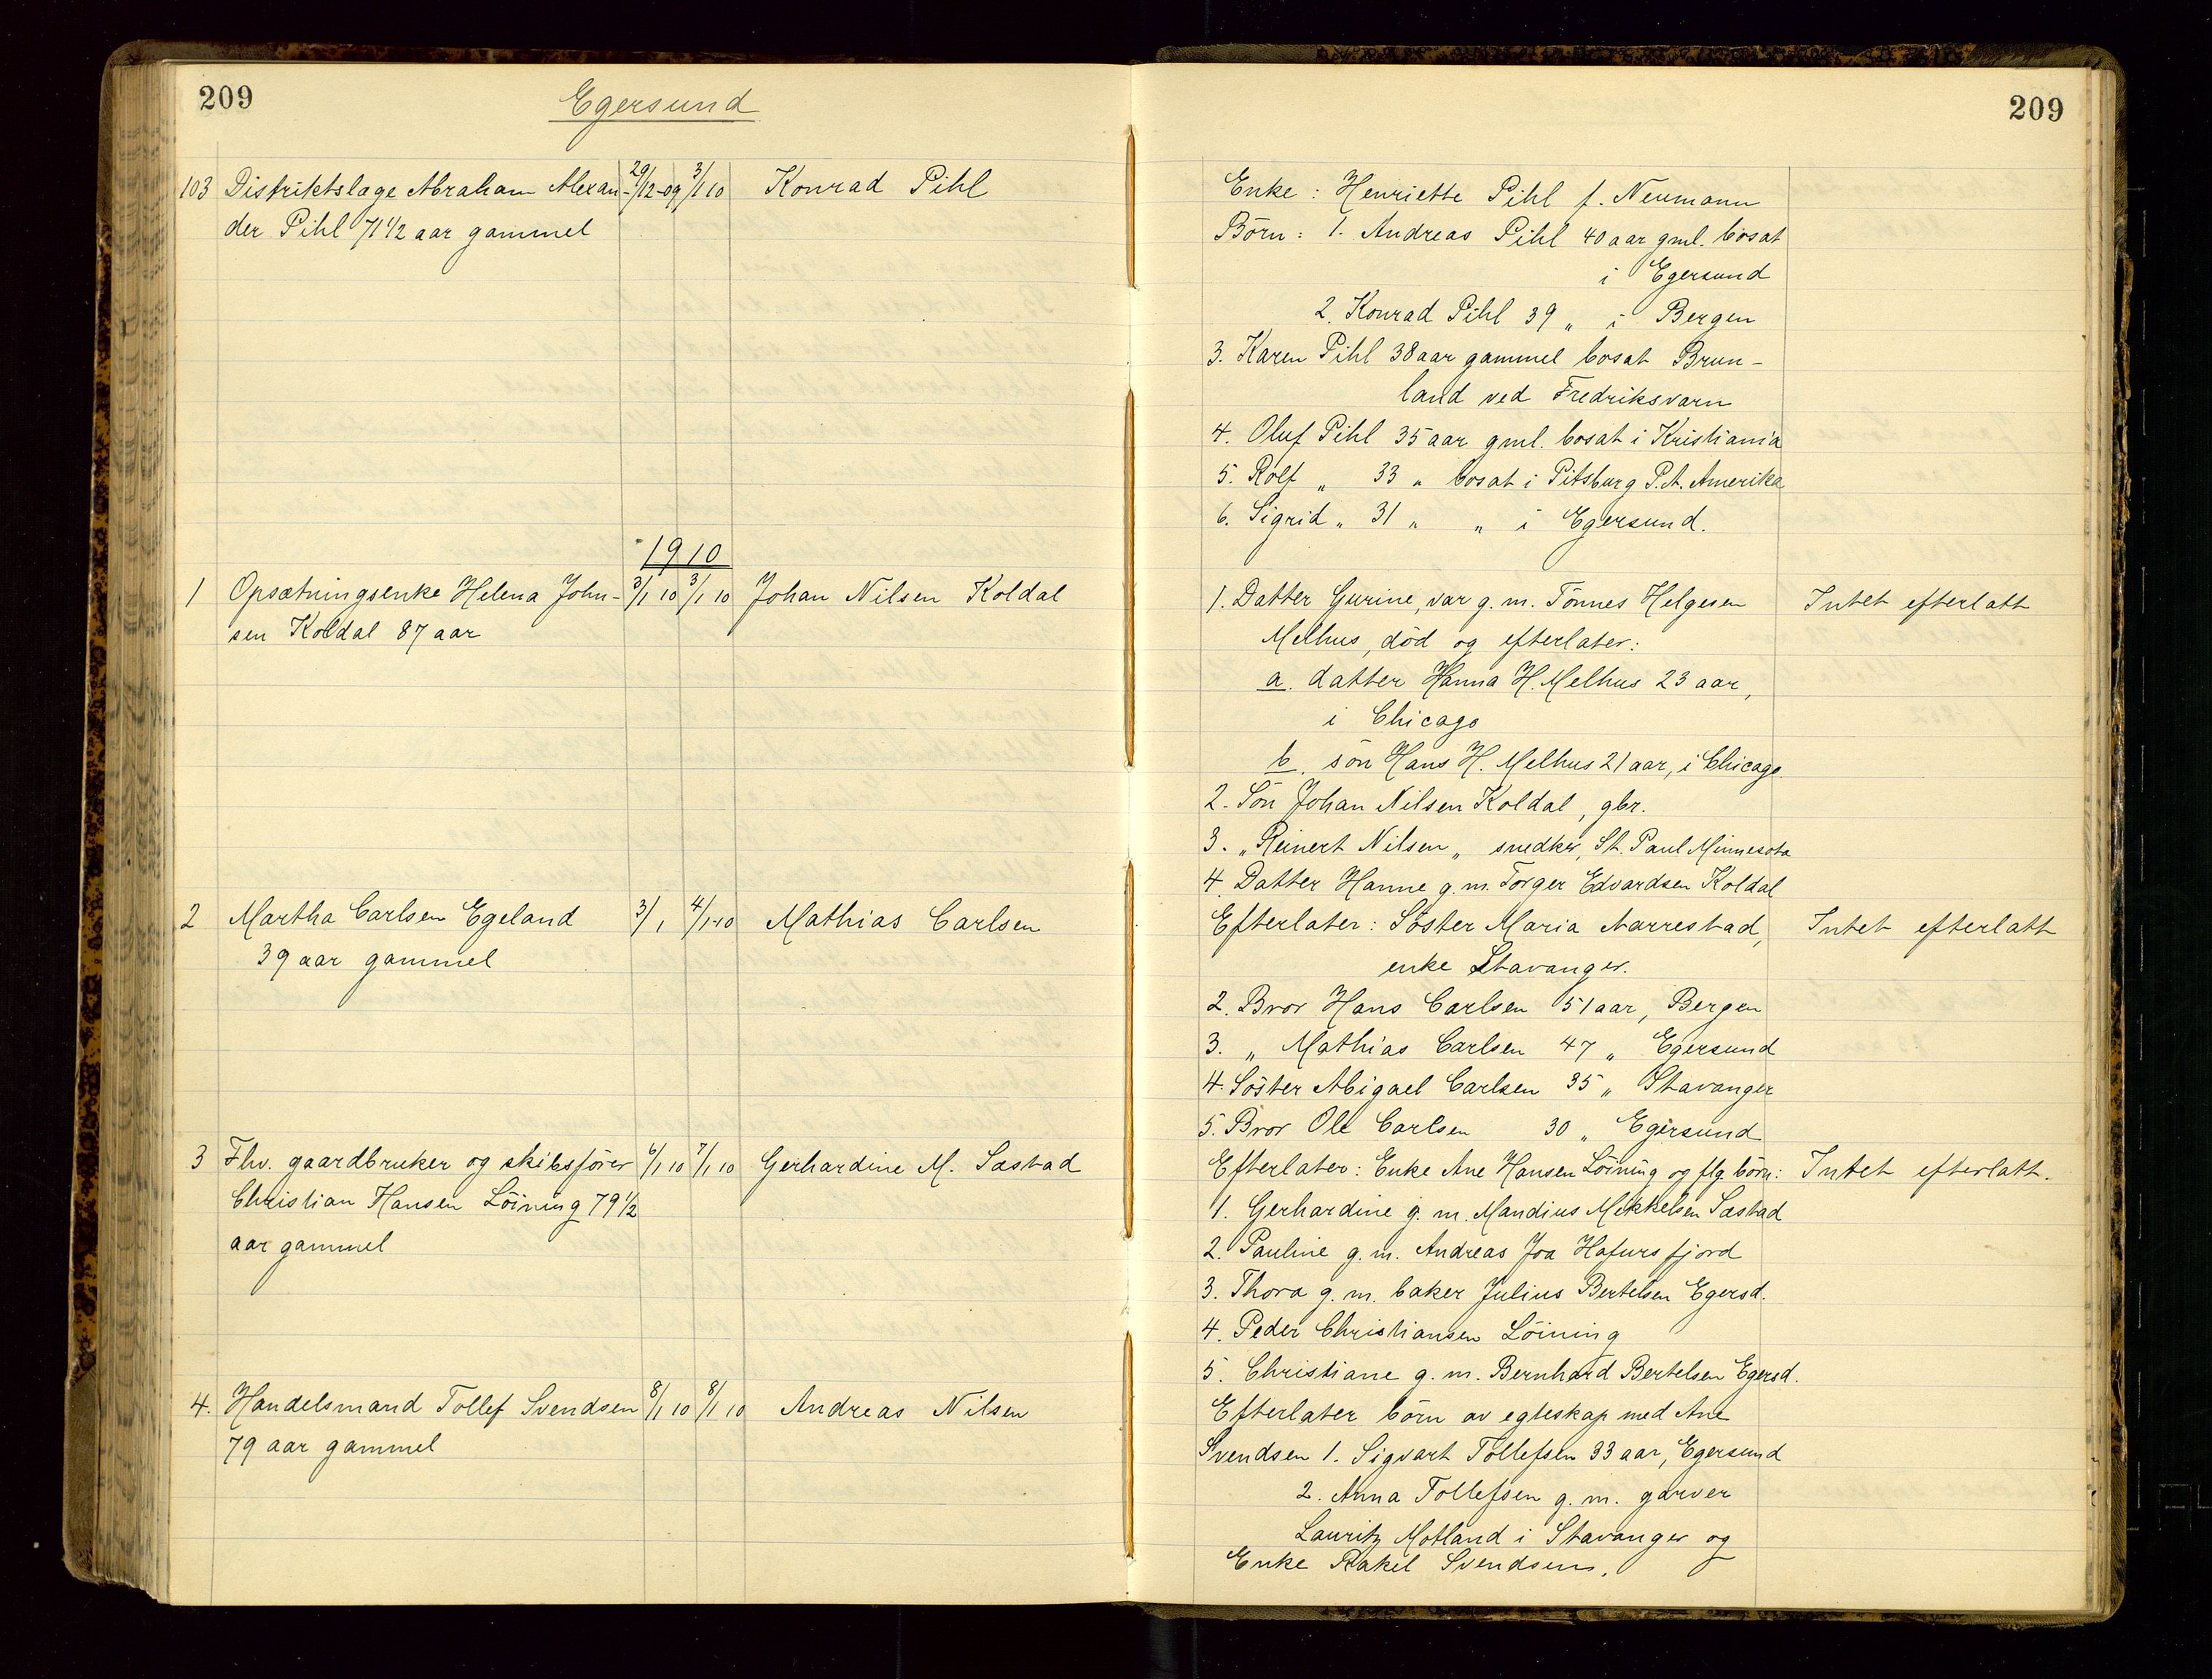 209
Egersund
103 Distriktslæge Abraham Alexan- 29/12-09 3/1 10 Konrad Pihl
der Pihl 71 1/2 aar gammel
1910
1 Opsætningsenke Helena John- 3/1 10 3/1 10 Johan Nilsen Koldal
sen Koldal 87 aar
2 Martha Carlsen Egeland 3/1 4/1-10 Mathias Carlsen
39 aar gammel
3 Fhv. gaardbruker og skibsfører 6/1 10 7/1 10 Gerhardine M. Sæstad
Christian Hansen Löining 79 1/2
aar gammel
4. Handelsmand Tollef Svendsen 8/1 10 8/1 10 Andreas Nilsen
79 aar gammel
209
Enke: Henriette Pihl f. Neumann
Børn: 1. Andreas Pihl 40 aar gml. bosat
i Egersund
2. Konrad Pihl 39 „ i Bergen
3. Karen Pihl 38 aar gammel bosat Brun-
land ved Fredriksvarn
4. Oluf Pihl 35 aar gml. bosat i Kristiania
5. Rolf „ 33 „ bosat i Pitsburg P.A. Amerika
6. Sigrid „ 31 „ „ i Egersund.
1. Datter Gurine, var g. m. Tönnes Helgesen Intet efterlatt
Melhus, död og efterlater:
a. datter Hanna H. Melhus 23 aar,
i Chicago
b. sön Hans H. Melhus 21 aar, i Chicago.
2. Sön Johan Nilsen Koldal, gbr.
3. „ Reinert Nilsen „ snedker, St. Paul Minnesota
4. Datter Hanne g. m. Torger Edvardsen Koldal
Efterlater: Söster Maria Narrestad, Intet efterlatt
enke Stavanger.
2. Bror Hans Carlsen 51 aar, Bergen
3. „ Mathias Carlsen 47 „ Egersund
4. Söster Abigael Carlsen 35 „ Stavanger
5. Bror Ole Carlsen 30 „ Egersund
Efterlater: Enke Ane Hansen Löining og flg. börn: Intet efterlatt.
1. Gerhardine g. m. Mandius Mikkelsen Sæstad
2. Pauline g. m. Andreas Joa Hafursfjord
3. Thora g. m. baker Julius Bertelsen Egersd.
4. Peder Christiansen Löining
5. Christiane g. m. Bernhard Bertelsen Egersd.
Efterlater börn av egteskap med Ane
Svendsen 1. Sigvart Tollefsen 33 aar, Egersund
2. Anna Tollefsen g. m. garver
Lauritz Motland i Stavanger og
Enke Rakel Svendsen.